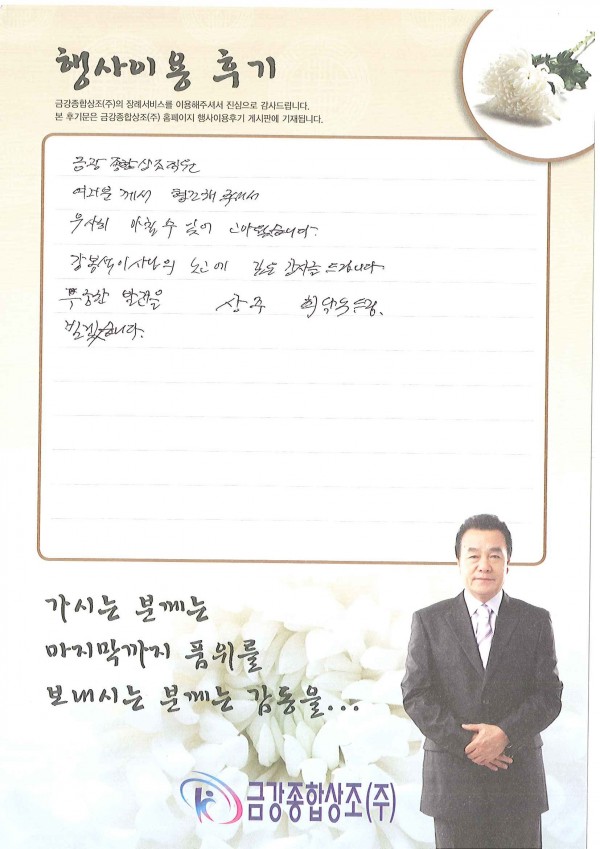 행사이용 후기
금강종합상조(주)의 장례서비스를 이용해주셔서 진심으로 감사드립니다.
본 후기문은 금강종합상조(주) 홈페이지 행사이용후기 게시판에 기재됩니다.
금강 종합상조직원
여러분 께서 협조해 주셔서
무사히 마칠 수 있어 고마웠습니다.
강봉석이사님의 노고에 깊은 감사를 드립니다.
무궁한 발전을 상주
빌겠습니다.
가시는 분께는
마지막까지 품위를
보내시는 분께는 감동을...
금강종합상조(주)